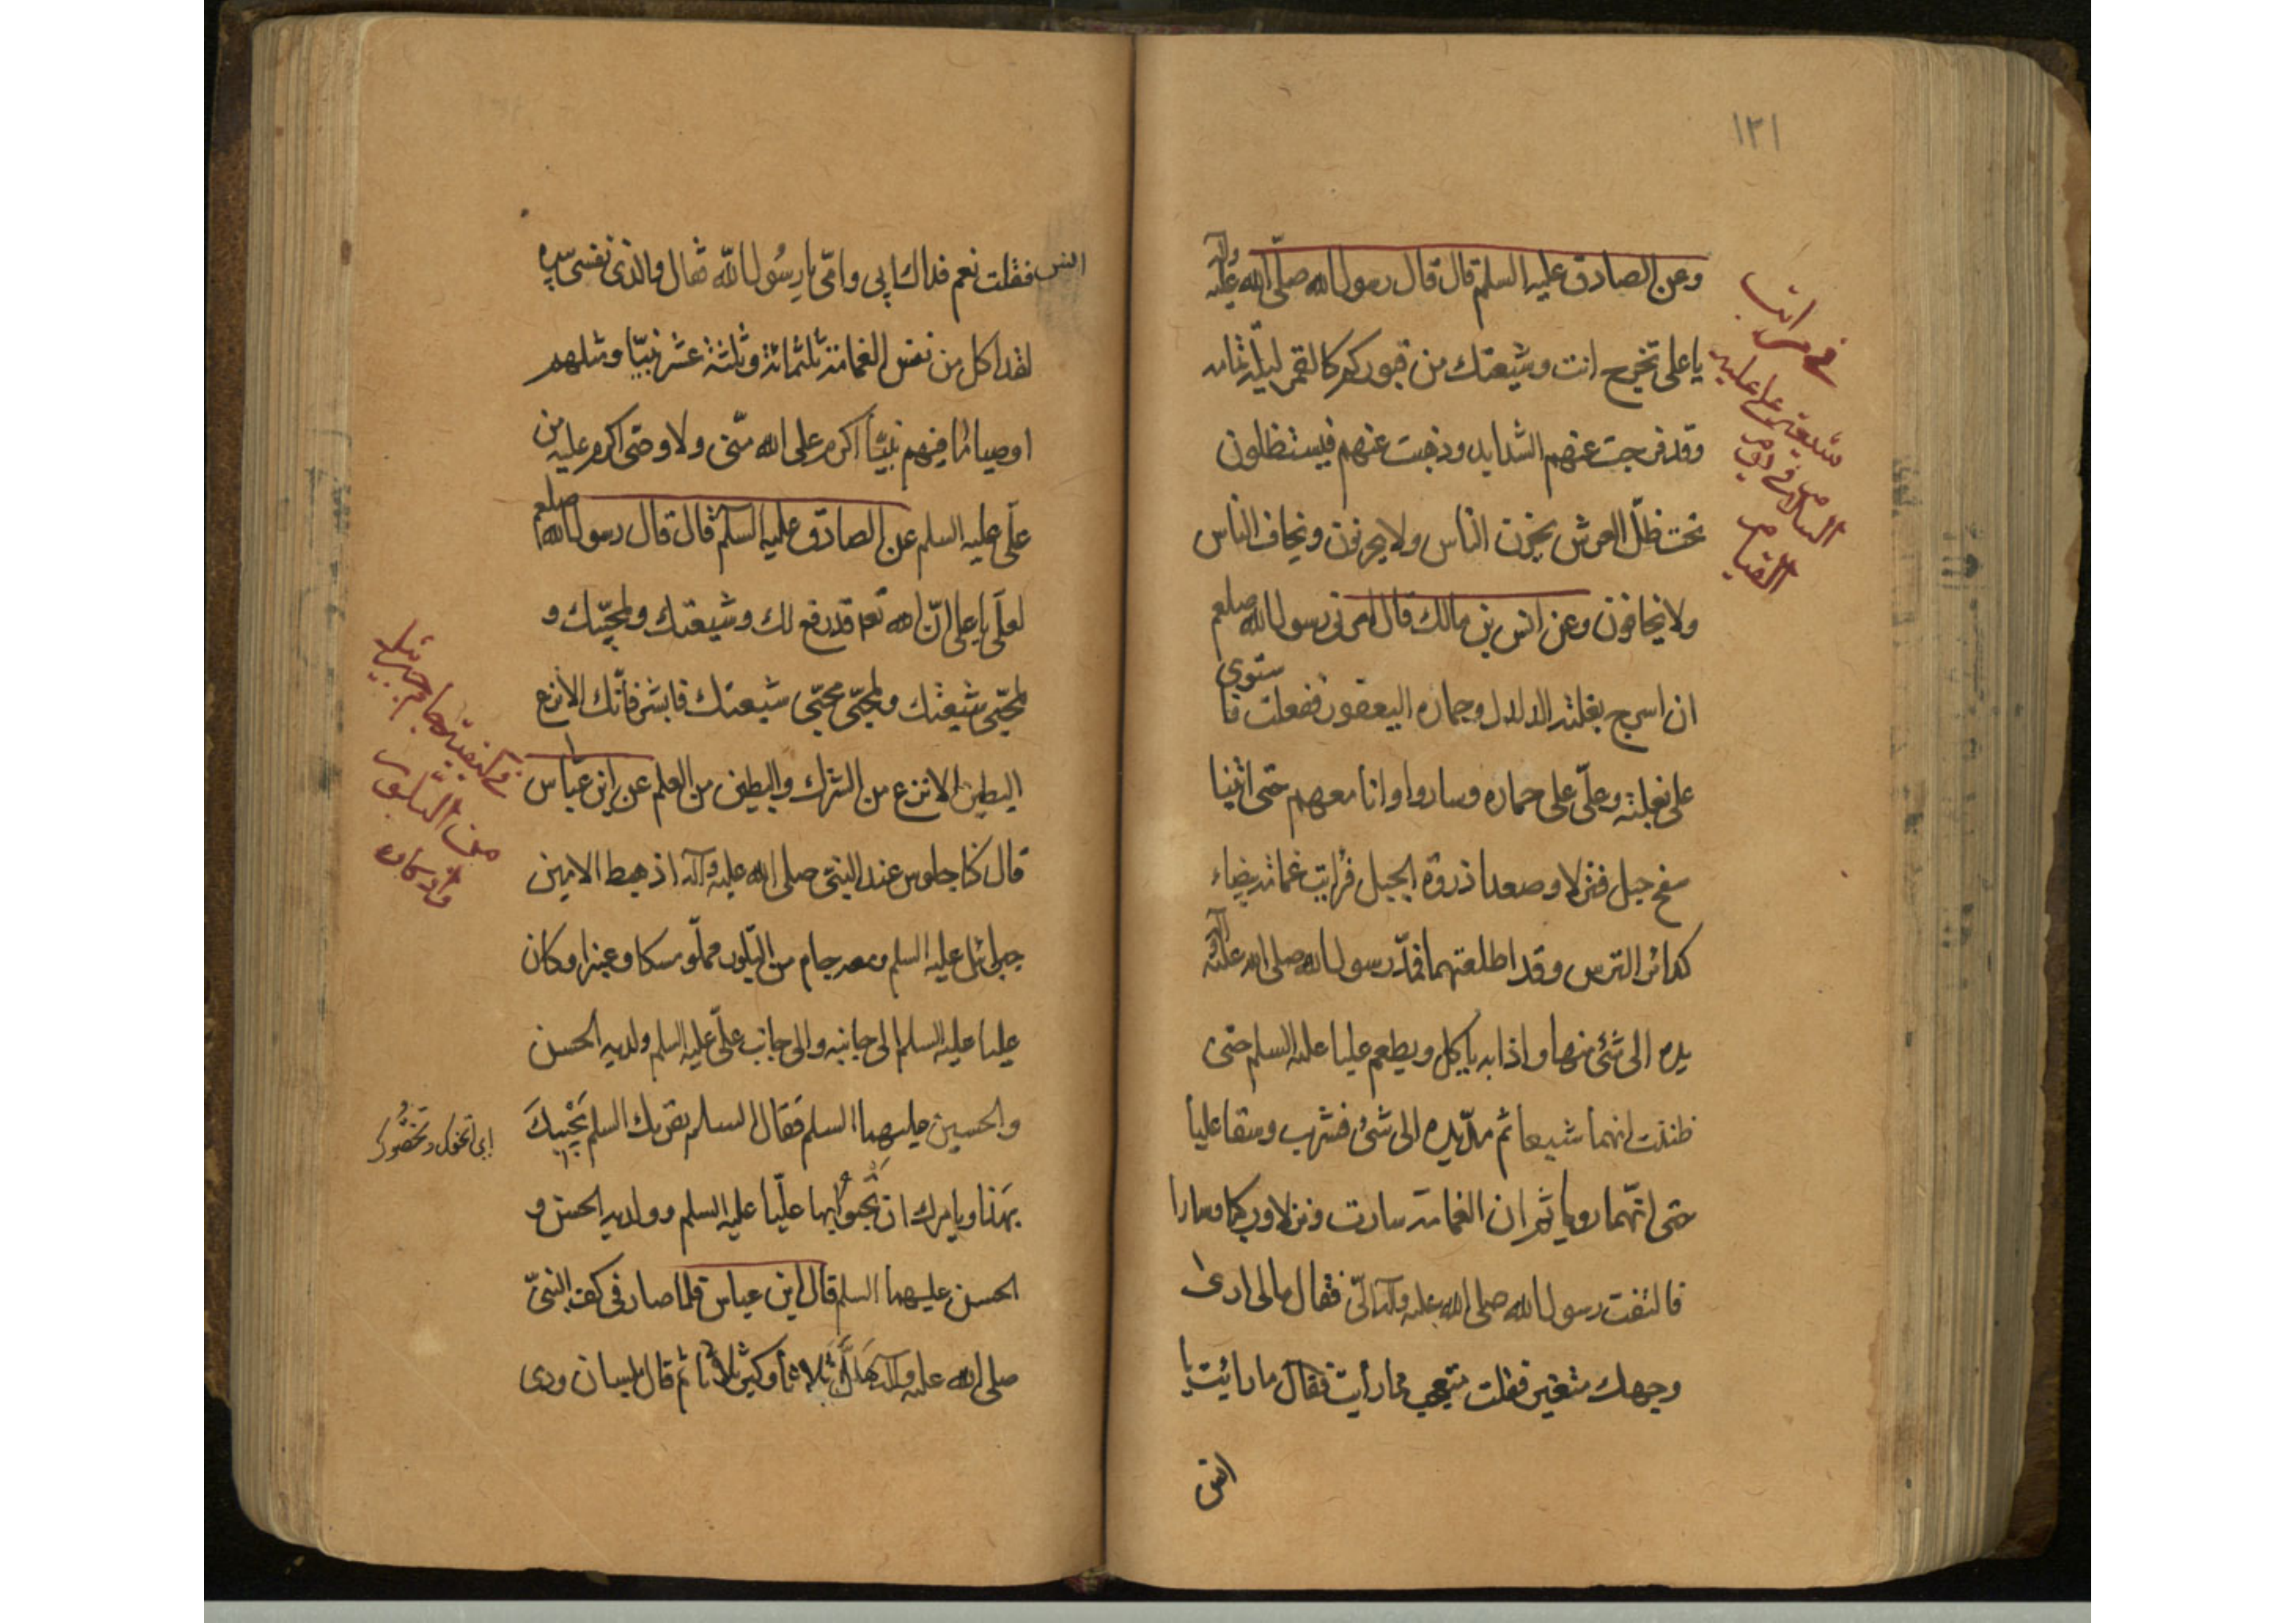 ١٢١
وعن الصادق عليه السلم قال قال رسول الله صلّى الله عليه وآله
يا على تخرج انت وشيعتك من قبوركم كالقمر ليلة تمامه
وقد فرجت عنهم الشدايد وذهبت عنهم فيستظلون
تحت ظلّ العرش يحزن الناس ولا يحزنون ويخاف الناس
ولا يخافون وعن انس بن مالك قال امرنى رسول الله صلعم
ان اسرج بغلته الدلدل وحماره اليعفور ففعلت فاستوى
على بغلته وعلّى على حماره وساروا وانا معهم حتى اتينا
سفح جبل فنزلا وصعدا ذروة الجبل فرايت غمامة بيضاء
كدائر الترس وقد اظلتهما فمدّ رسول الله صلى الله عليه وآله
يده الى شئ منها واذا به ياكل ويطعم عليا عليه السلم حتى
ظننت انهما شبعا ثم مدّ يده الى شئ فشرب وسقا عليا
حتى انّهما رويا ثم ان الغمامة سارت ونزلا وركبا وسارا
فالتفت رسول الله صلى الله عليه وآله الىّ فقال مالى ارى
وجهك متغير فقلت متعجب مما رأيت فقال ما رايت يا
انس
فى مراتب
شيعة على عليه
السلام فى يوم
القيام
انس فقلت نعم فداك ابى وامّى يا رسُول الله فقال والذى نفسى بيده
لقد اكل من نفس الغمامة ثلثمائة وثلثة عشر نبيّا ومثلهم
اوصيا ما فيهم نبيّا اكرم على الله منّى ولا وصّى اكرم عليه من
علّى عليه السلم عن الصادق عليه السلم قال قال رسول الله صلعم
لعلّى يا على انّ الله قد رفع لك وشيعتك ولمحبّيك و
لمحبّى شيعتك ولمحبّى محبّى شيعتك فابشر فانّك الانزع
البطين الانزع من الشرك والبطين من العلم عن ابن عباس
قال كنا جلوس عند النبىّ صلى الله عليه وآله اذ هبط الامين
جبرائيل عليه السلم ومعه جام من البلّور مملّو مسكا وعنبرا وكان
عليا عليه السلم الى جانبه والى جانب علّى عليه السلم ولديه الحسن
والحسين عليهما السلم فقال السلم يقريك السلم يحييك
بهذا ويامرك ان تحيوا بها عليّا عليه السلم وولديه الحسن و
الحسين عليهما السلم قال ابن عباس فلما صار فى كف النبىّ
صلى الله عليه وآله هلّل ثلاثا وكبّر ثلاثا ثم قال بلسان ودى
جام جبرئيل
من البلّور